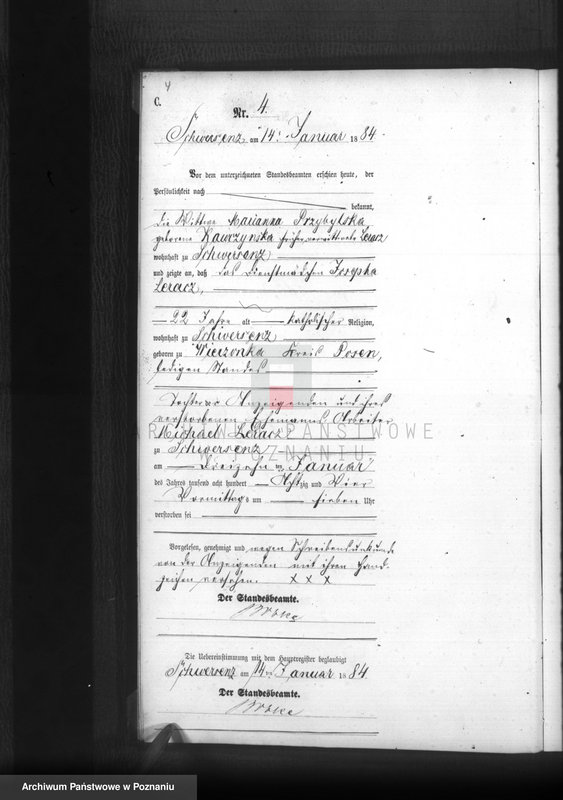 4
C.
Nr. 4.
Schwersenz am 14. Januar 1884.
Vor dem unterzeichneten Standesbeamten erschien heute, der
Persönlichkeit nach
bekannt,
die Wittwe Marianna Przybylska
geborene Kawczynska früher verwittwete Leracz
wohnhaft zu Schwersenz
und zeigte an, daß das Dienstmädchen Josepha
Leracz,
22 Jahre alt katholischer Religion,
wohnhaft zu Schwersenz
geboren zu Wierzonka Kreis Posen,
ledigen Standes
Tochter der Anzeigenden und ihres
verstorbenen Ehemannes Arbeiter
Michael Leracz
ARCHIWUM PAŃSTWOWE
W POZNANIU
zu Schwersenz
am Dreizehn ten Januar
des Jahres tausend acht hundert Achtzig und Vier
Vormittags um sieben Uhr
verstorben sei
Vorgelesen, genehmigt und wegen Schreibensunkunde
von der Anzeigenden mit ihren Hand-
zeichen versehen. x x x
Der Standesbeamte.
Die Uebereinstimmung mit dem Hauptregister beglaubigt
Schwersenz am 14 ten Januar 1884
Der Standesbeamte.
Archiwum Państwowe w Poznaniu